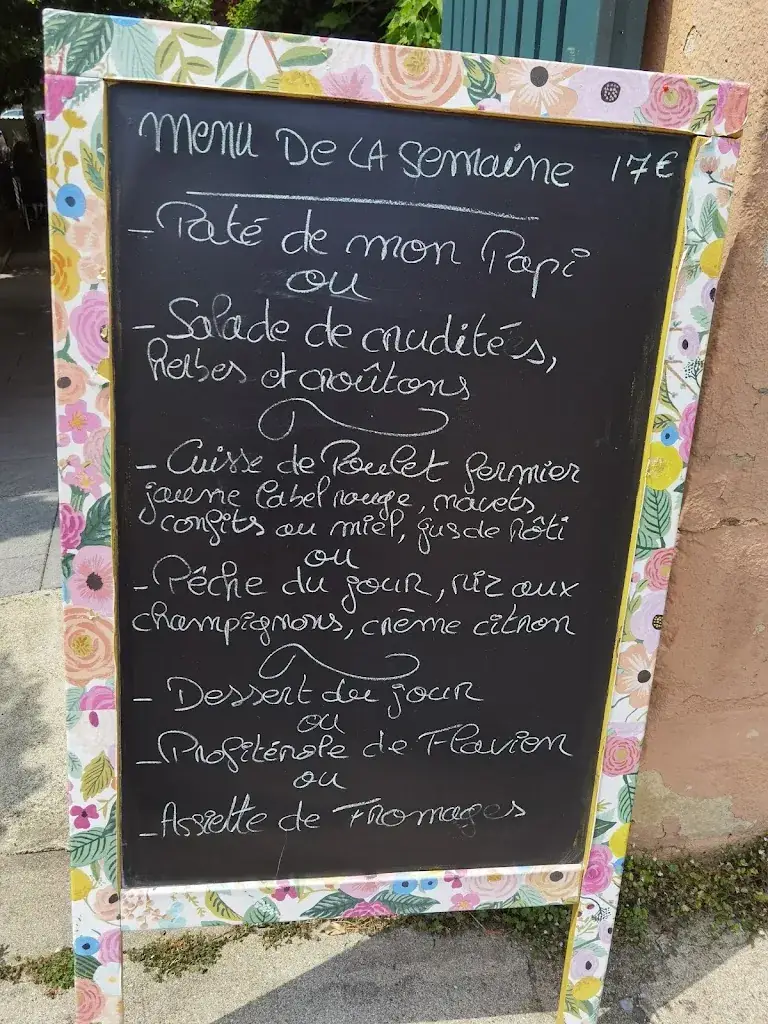 Menu De La Semaine 17€
- Paté de mon Papi
ou
- Salade de crudités,
herbes et croûtons
- Cuisse de Poulet fermier
jaune label rouge, navets
confits au miel, jus de rôti
ou
- Pêche du jour, riz aux
champignons, crème citron
- Dessert du jour
ou
- Profiterole de Flavien
ou
- Assiette de Fromages